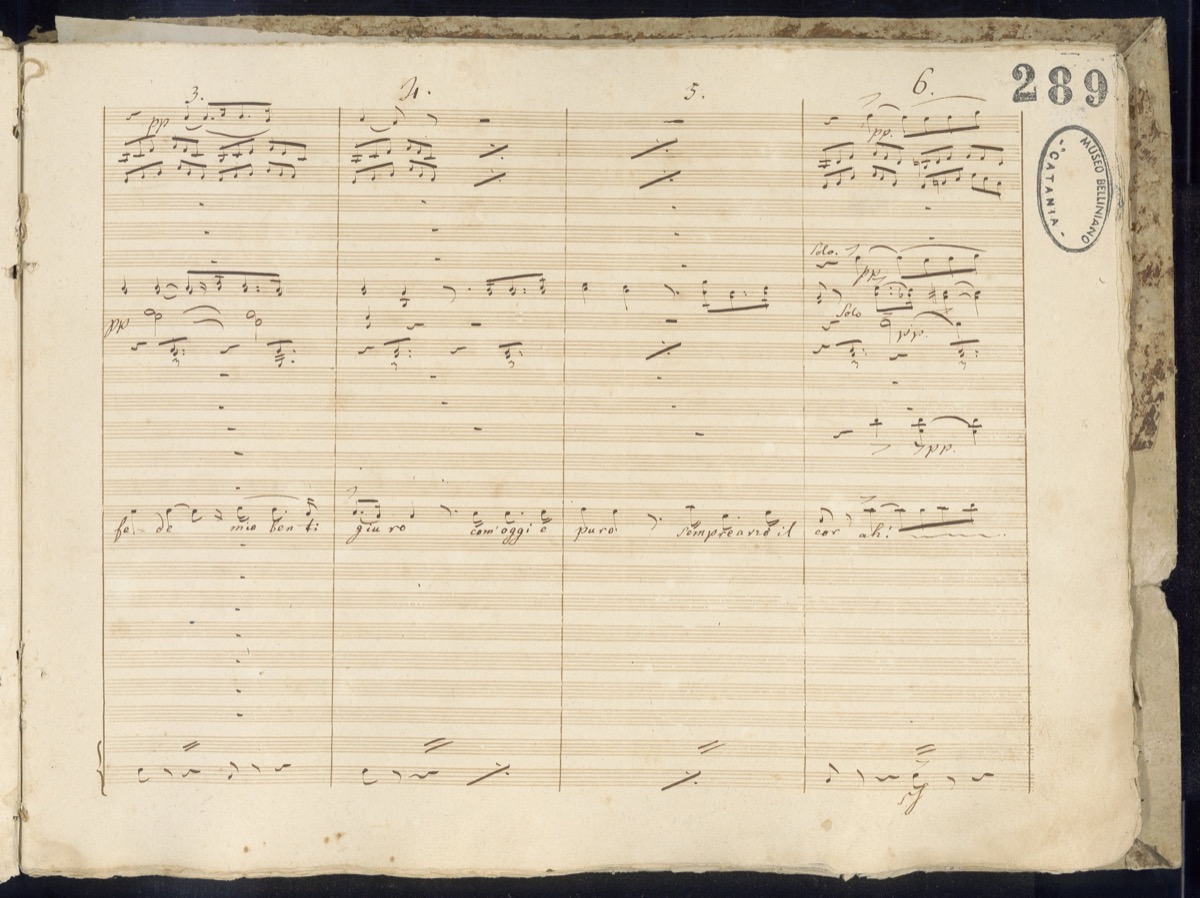 3. 4. 5. 6.
289
MUSEO BELLINIANO
- CATANIA -
pp pp.
Solo.
pp
Solo
pp pp.
pp.
fe - de mio ben ti giuro com' oggi è puro sempre avrò il cor ah!
sf